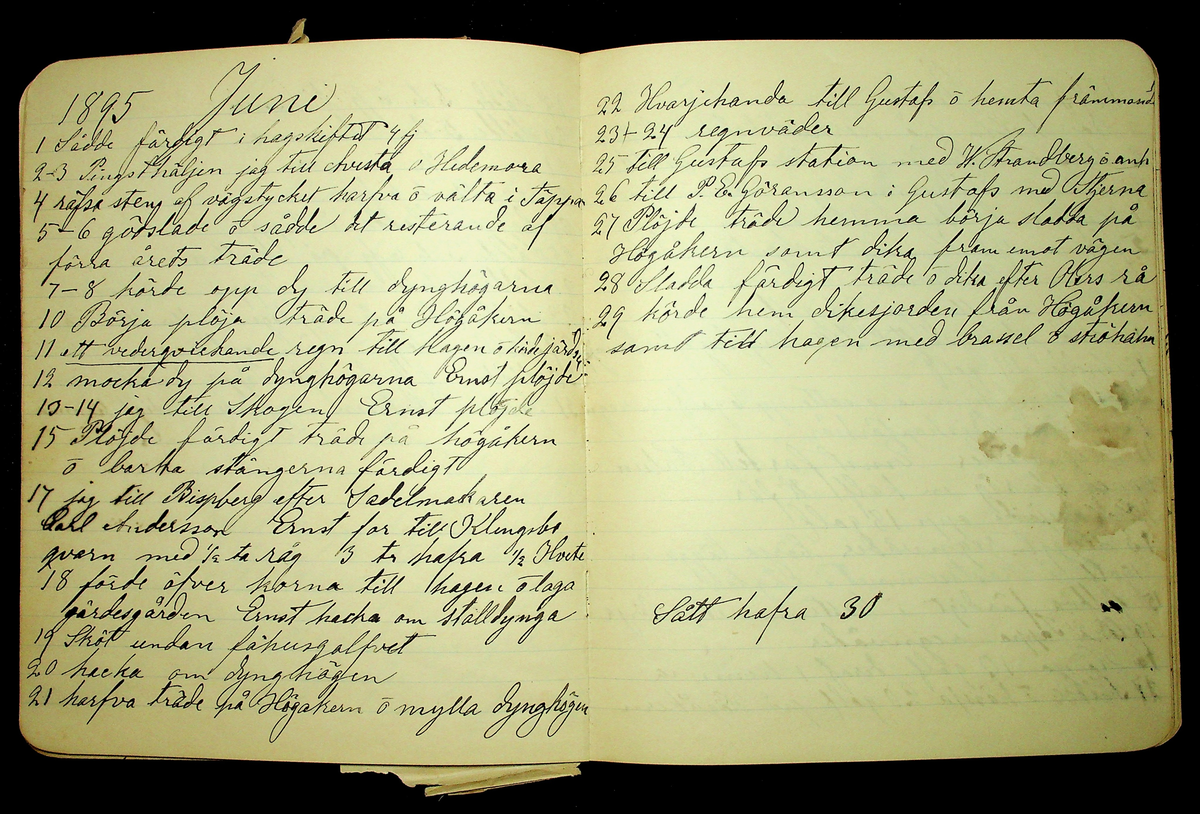 1895 Juni
1 Sådde färdigt i hagskiftet 4 fj
2-3 Pingsthäljen jag till Avesta o Hedemora
4 räfsa sten af vägstycket harfva ō välta i Täppan
5-6 gödslade o sådde det resterande af
förra årets träde
7-8 körde opp dy till dynghögarna
10 Börja plöja träde på Högåkern
11 ett vederqvickande regn till Hagen ō
12 mocka dy på dynghögarna Ernst plöjde
13-14 jag till Skogen Ernst plöjde
15 Plöjde färdigt träde på högåkern
ō barka stängerna färdigt
17 jag till Bispberg efter Sadelmakaren
Carl Andersson Ernst for till Klingsbo
qvarn med 1/2 ta råg 3 tr hafra 1/2 Hvete
18 förde öfver korna till hagen ō laga
gärdesgården Ernst hacka om ställdynga
19 Sköt undan fähusgolfvet
20 hacka om dynghögen
21 harfva träde på Högakern ō mylla dynghögen
22 Hvarjehanda till Gustafs ō hemta främmand
23+24 regnväder
25 till Gustafs station med W. Strandberg ō anh
26 till P. E. Göransson i Gustafs med Stjerna
27 Plöjde träde hemma börja sladda på
Högåkern samt dika fram emot vägen
28 Sladda färdigt träde ō dika efter Olers rå
29 körde hem dikesjorden från Högåkern
samt till hagen med brassel ō
Sått hafra 30